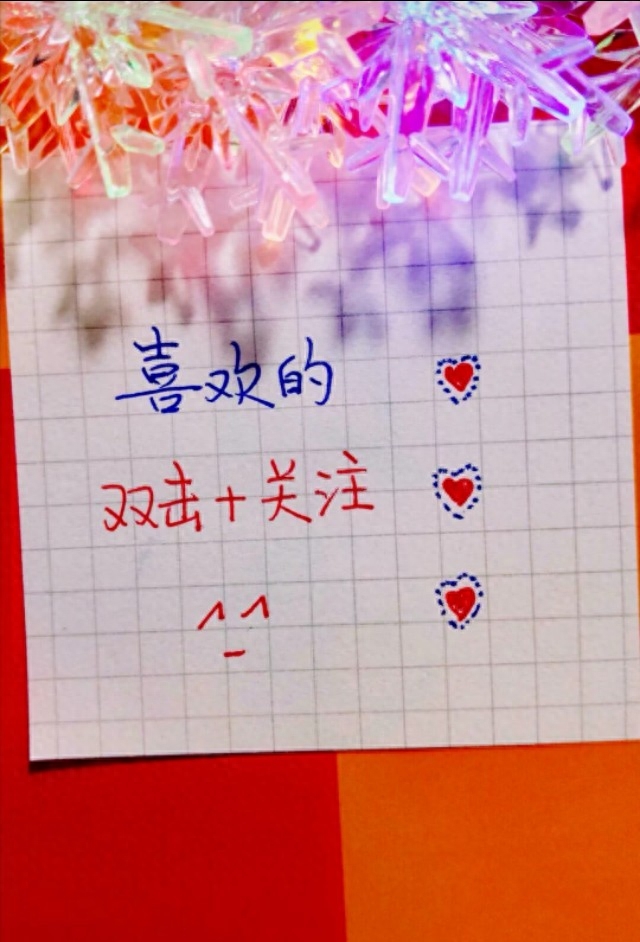 喜欢的
双击+关注
^_^